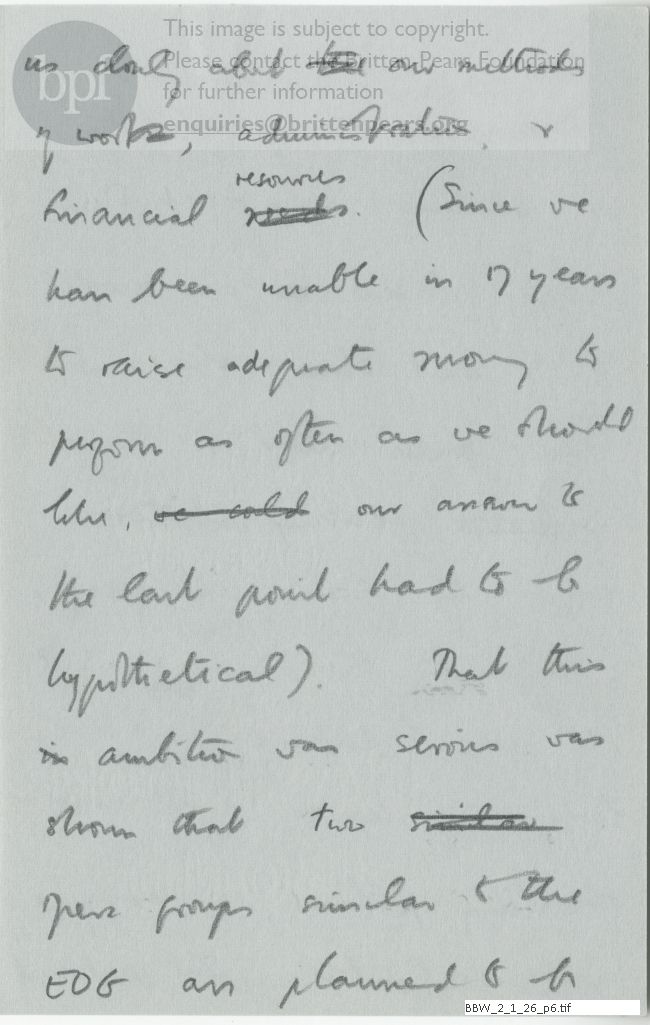 This image is subject to copyright.
Please contact the Britten-Pears Foundation
for further information
enquiries@brittenpears.org
bpf
us closely about the our methods
of work, administration, &
resources
financial needs. (Since we
have been unable in 17 years
to raise adequate money to
perform as often as we should
like, we could our answer to
the last point had to be
hypothetical). That this
ambition was serious was
shown that two similar
opera groups similar to the
EOG are planned to be
BBW_2_1_26_p6.tif